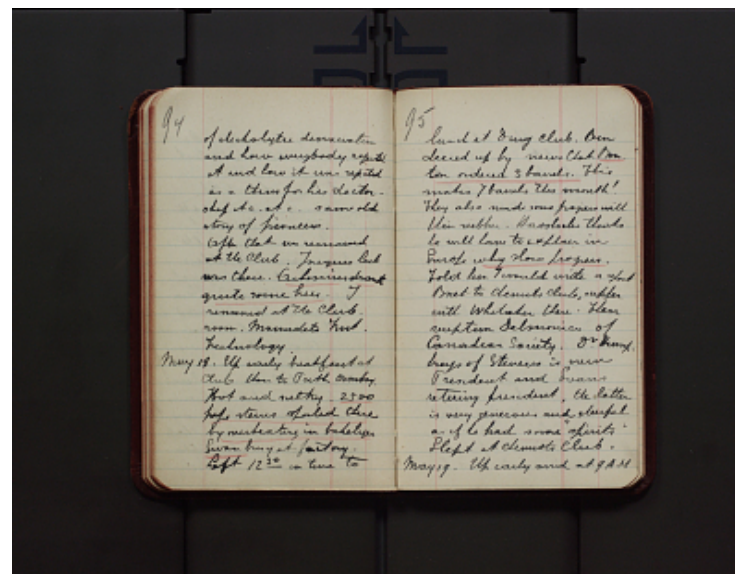 94
of electrolytic dissociation
and how everybody rejected
it and how it was rejected
as a thesis for his doctor-
ship &c. &c. same old
story of pioneers.
After that we remained
at the Club. Jacques Loeb
was there. Arrhenius drank
quite some beer. I
remained at the Club.
room. Massachts Inst.
Technology.
May 18. Up early breakfast at
Club then to Perth Amboy.
Hot and 2500
stems spoiled there
by overheating in bakelizer
Swan busy at factory.
Left 12 30 in time to
95
lunch at Drug Club.
up by news that
ordered 3 barrels. This
makes 7 barrels this month!
They also made some progress with
their rubber. Hasslacher thinks
he will have to explain in
Europe why slow progress.
Told him I would write a
Back to Chemists Club, supper
with Whitaker there. Then
reception Delmonico of
Canadian Society. Dr Hum-
phreys of Stevens is new
President and Evans
retiring president. The latter
is very generous and cheerful
as if he had some "spirits"
Slept at Chemists Club.
May 19. Up early and at 9 AM